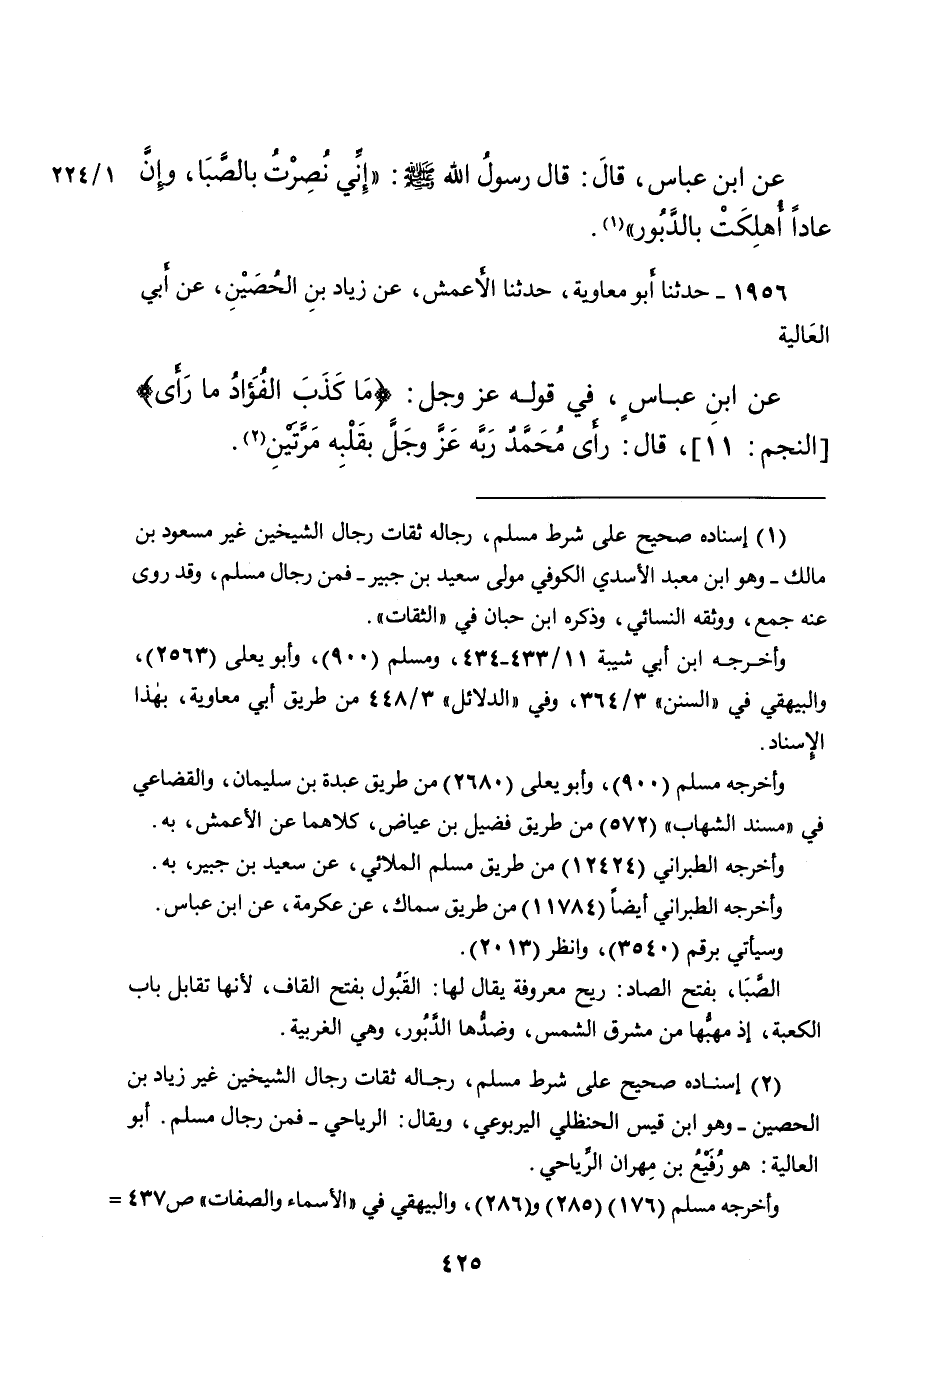 عن ابن عباس، قالَ: قال رسولُ الله ﷺ: «إِنِّي نُصِرْتُ بالصَّبَا، وإِنَّ ٢٢٤/١
عاداً أُهلِكَتْ بالدَّبُور»(١).
١٩٥٦ ـ حدثنا أَبو معاوية، حدثنا الأَعمش، عن زياد بنِ الحُصَيْنِ، عن أَبي
العَالية
عن ابنِ عبـاسٍ، في قولـه عز وجل: ﴿مَا كَذَبَ الفُؤَادُ ما رَأَى﴾
[النجم: ١١]، قال: رأَى مُحَمَّدٌ رَبَّه عَزَّ وجَلَّ بقَلْبِه مَرَّتَيْنِ(٢).
(١) إسناده صحيح على شرط مسلم، رجاله ثقات رجال الشيخين غير مسعود بن
مالك ـ وهو ابن معبد الأسدي الكوفي مولى سعيد بن جبير ـ فمن رجال مسلم، وقد روى
عنه جمع، ووثقه النسائي، وذكره ابن حبان في «الثقات».
وأخـرجـه ابن أبي شيبة ٤٣٣/١١-٤٣٤، ومسلم (٩٠٠)، وأبو يعلى (٢٥٦٣)،
والبيهقي في «السنن» ٣٦٤/٣، وفي «الدلائل» ٤٤٨/٣ من طريق أبي معاوية، بهٰذا
الإِسناد.
وأخرجه مسلم (٩٠٠)، وأبو يعلى (٢٦٨٠) من طريق عبدة بن سليمان، والقضاعي
في «مسند الشهاب» (٥٧٢) من طريق فضيل بن عياض، كلاهما عن الأعمش، به.
وأخرجه الطبراني (١٢٤٢٤) من طريق مسلم الملائي، عن سعيد بن جبير، به.
وأخرجه الطبراني أيضاً (١١٧٨٤) من طريق سماك، عن عكرمة، عن ابن عباس.
وسيأتي برقم (٣٥٤٠)، وانظر (٢٠١٣).
الصَّبَا، بفتح الصاد: ريح معروفة يقال لها: القَبُول بفتح القاف، لأنها تقابل باب
الكعبة، إذ مهبُّها من مشرق الشمس، وضدُّها الدَّبُور، وهي الغربية.
(٢) إسنـاده صحيح على شرط مسلم، رجـاله ثقات رجال الشيخين غير زياد بن
الحصين ـ وهو ابن قيس الحنظلي اليربوعي، ويقال: الرياحي ـ فمن رجال مسلم. أبو
العالية: هو رُفَيْعُ بن مِهران الرِّياحي.
وأخرجه مسلم (١٧٦) (٢٨٥) و(٢٨٦)، والبيهقي في «الأسماء والصفات» ص٤٣٧ =
٤٢٥